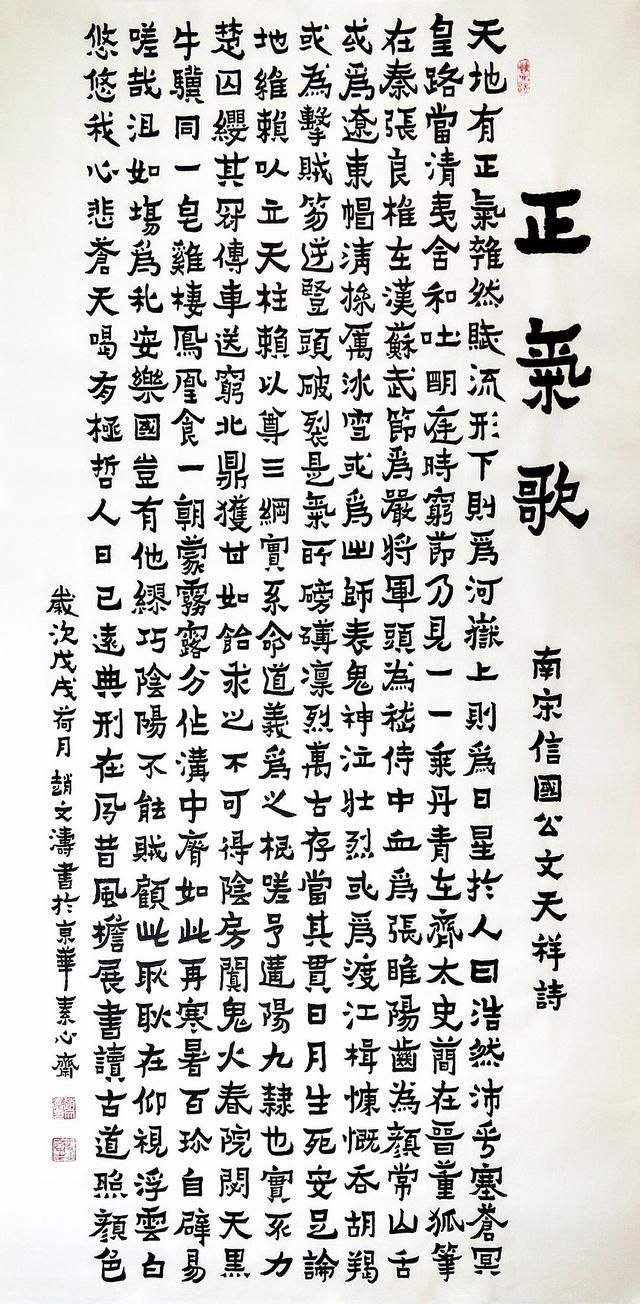 正氣歌
南宋信國公文天祥詩
天地有正氣雜然賦流形下則爲河嶽上則爲日星於人曰浩然沛乎塞蒼冥
皇路當清夷含和吐朙庭時窮節乃見一一垂丹青在齊太史簡在晉董狐筆
在秦張良椎在漢蘇武節爲嚴將軍頭為嵇侍中血爲張睢陽齒為顏常山舌
或爲遼東帽清操厲冰雪或爲出師表鬼神泣壯烈或爲渡江楫慷慨吞胡羯
或為擊賊笏逆豎頭破裂是氣所磅礴凜烈萬古存當其貫日月生死安足論
地維賴以立天柱賴以尊三綱實系命道義爲之根嗟予遘陽九隸也實不力
楚囚纓其冠傳車送窮北鼎獲甘如飴求之不可得陰房闃鬼火春院閟天黑
牛驥同一皂雞棲鳳凰食一朝蒙霧露分作溝中瘠如此再寒暑百沴自辟易
嗟哉沮如場爲我安樂國豈有他繆巧陰陽不能賊顧此耿耿在仰視浮雲白
悠悠我心悲蒼天喝有極哲人日已遠典刑在夙昔風檐展書讀古道照顏色
歲次戊戌荷月趙文濤書於京華素心齋